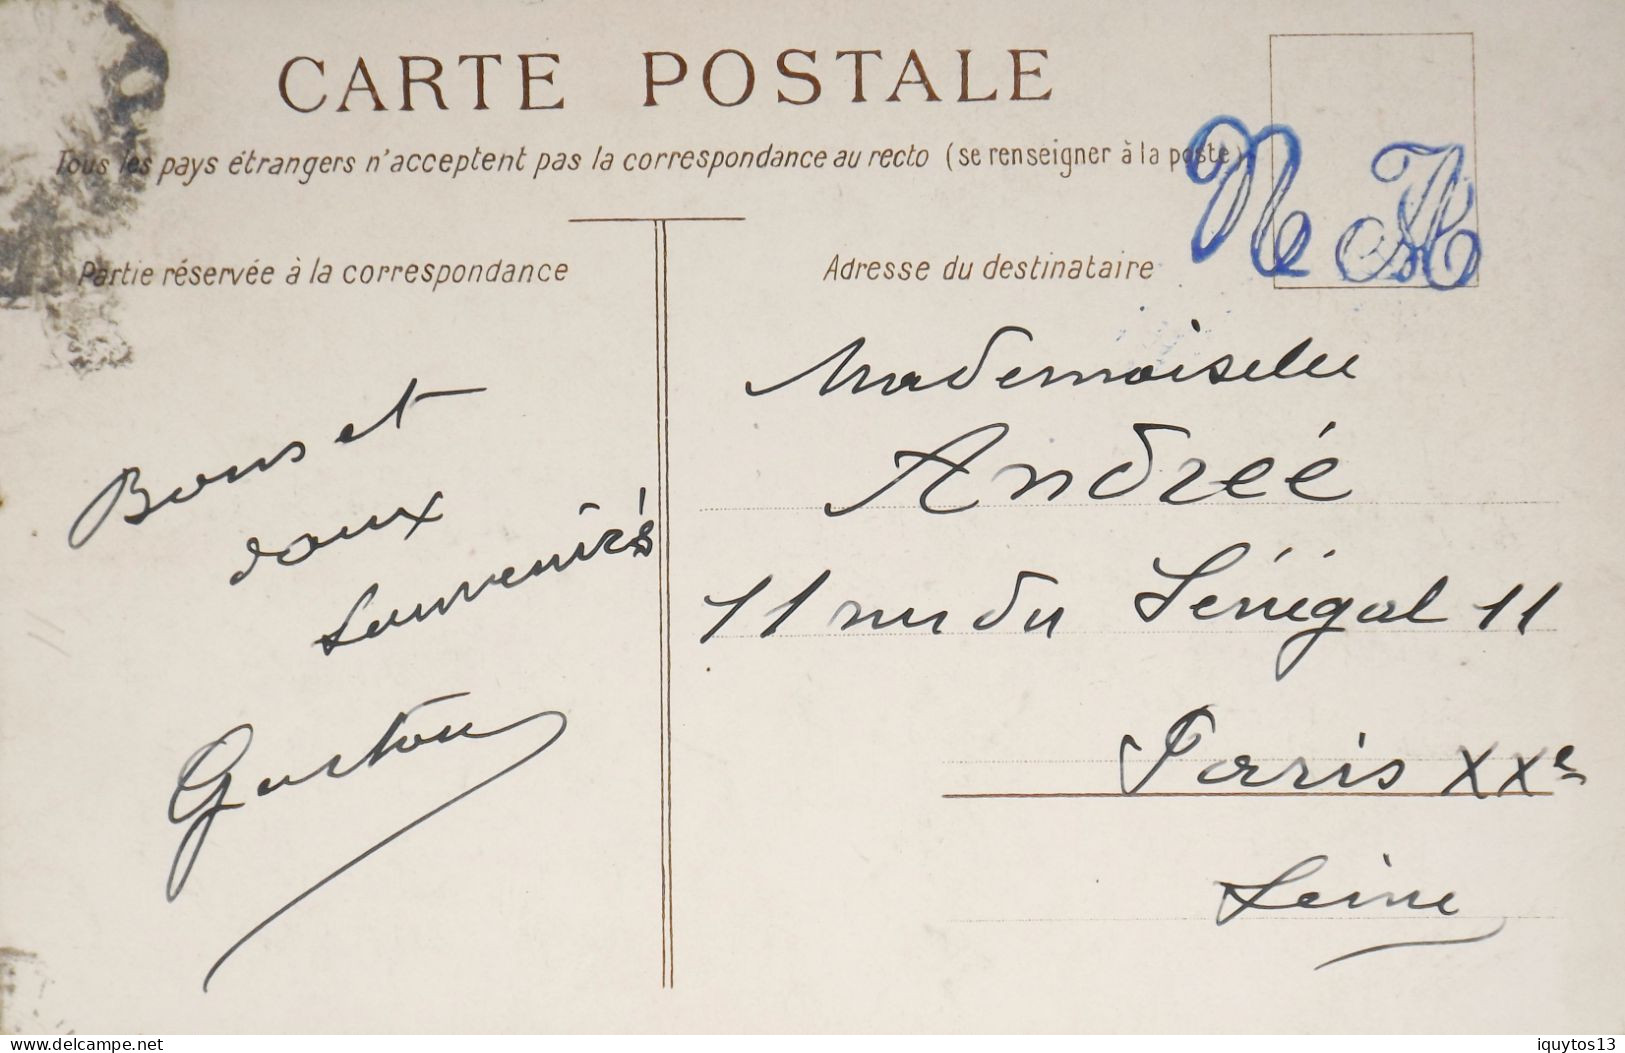 CARTE POSTALE
Tous les pays étrangers n'acceptent pas la correspondance au recto (se renseigner à la poste)
N A
Partie réservée à la correspondance
Adresse du destinataire
Bons et
doux
Souvenirs
Gaston
Mademoiselle
Andrée
11 rue du Sénégal 11
Paris XXe
Seine
www.delcampe.net
iquytos13